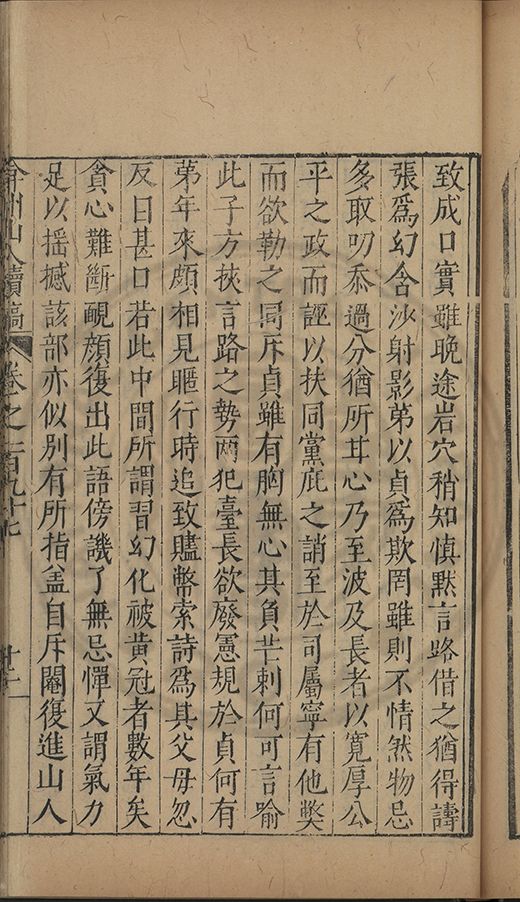 致成口實雖晚途岩穴稍知慎默言路借之猶得譸
張爲幻含沙射影第以貞爲欺罔雖則不情然物忌
多取叨忝過分猶所耳心乃至波及長者以寬厚公
平之政而誣以扶同黨庇之誚至於司屬寧有他獘
而欲勒之同斥貞雖有胸無心其負芒刺何可言喻
此子方挾言路之勢兩犯臺長欲廢憲規於貞何有
第年來頗相見暱行時追致贐幣索詩爲其父母忽
反曰甚口若此中間所謂習幻化被黃冠者數年矣
貪心難斷靦顔復出此語傍譏了無忌憚又謂氣力
足以揺撼該部亦似别有所指盖自斥閹復進山人
弇州山人續稿 卷之一百九十七 廿二